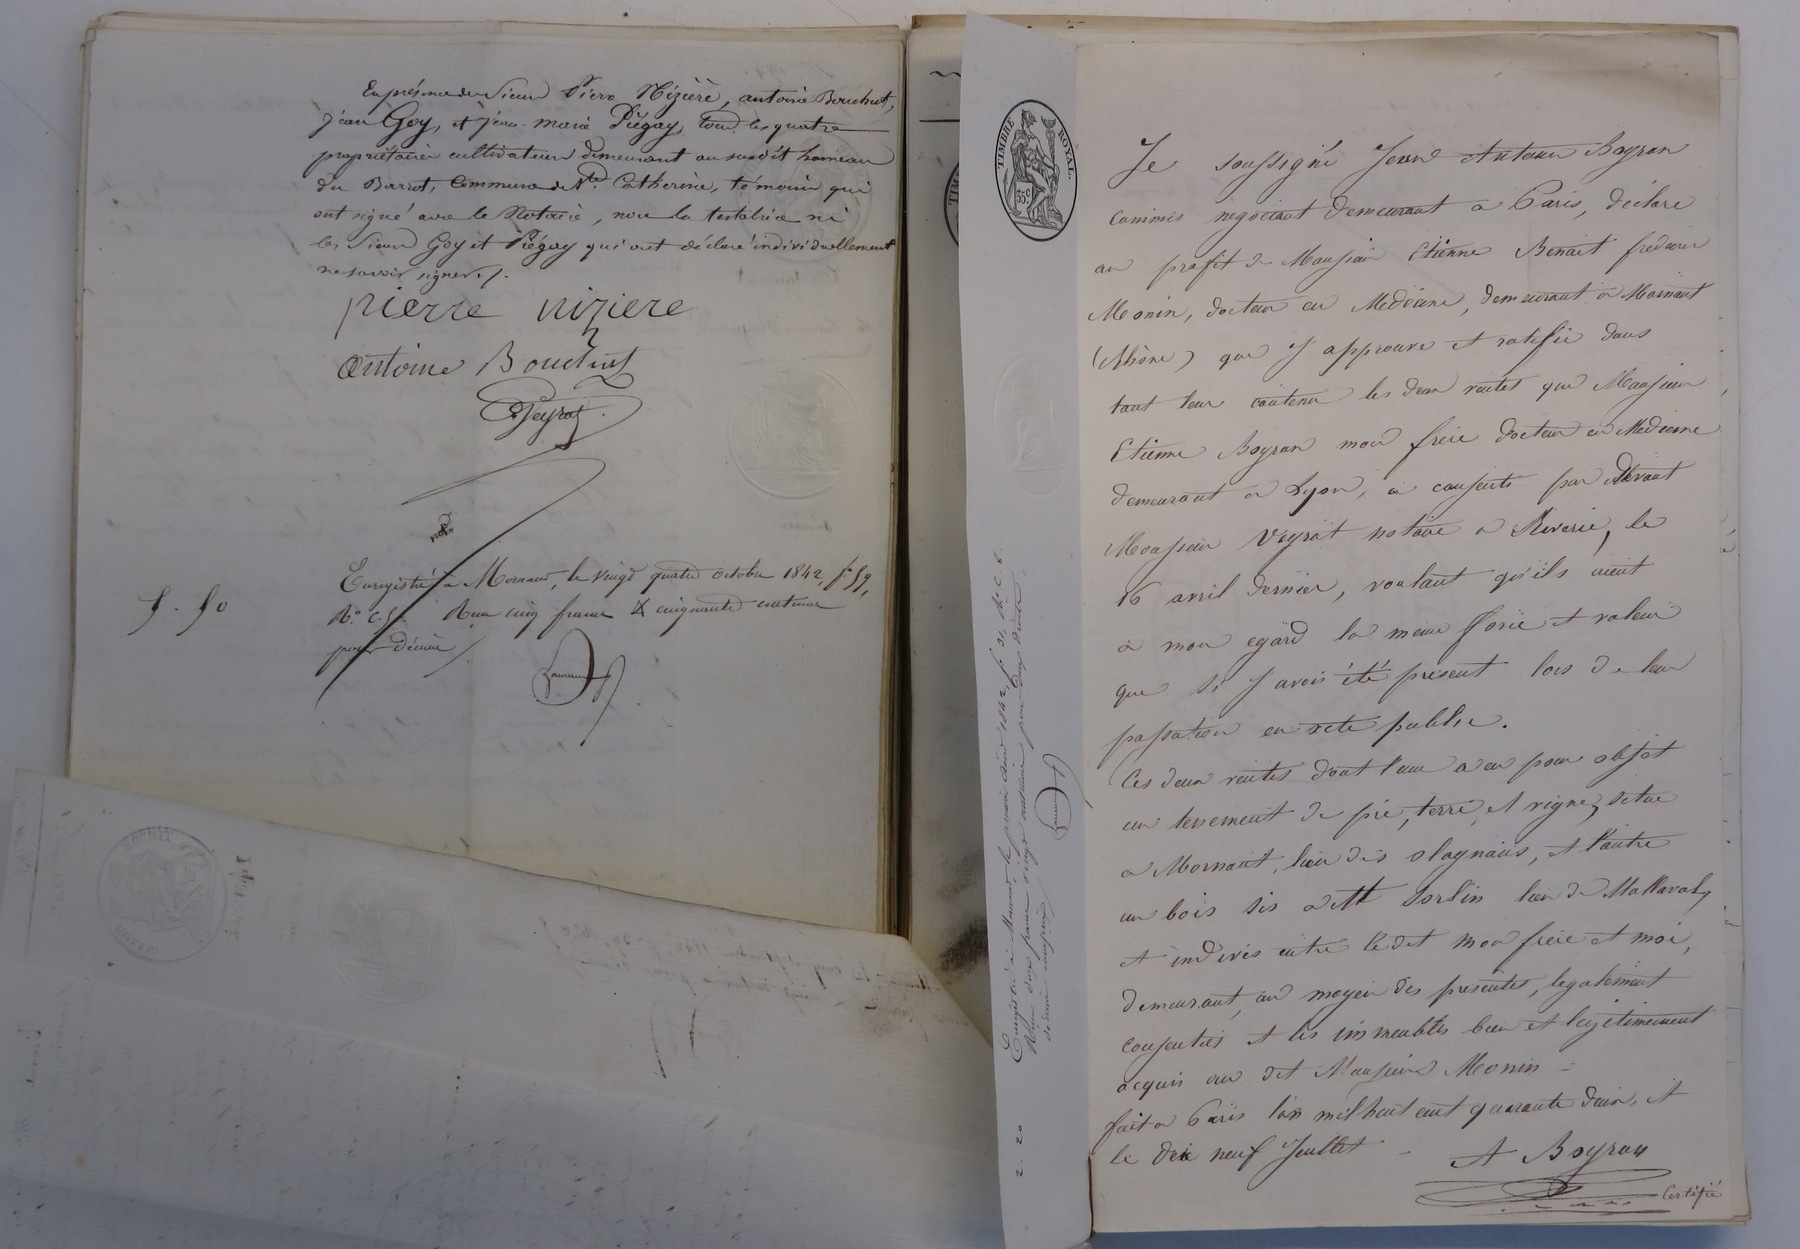 En présence des sieurs Pierre Nizière, antoine Bouchut,
jean Goy, et jean-marie Piégay, tous les quatre
propriétaires cultivateurs demeurant au susdit hameau
du Barret, Commune de Ste Catherine, témoins qui
ont signé avec le Notaire, non la testatrice ni
les sieurs Goy et Piégay qui ont déclaré individuellement
ne savoir signer./.
pierre niziere
antoine Bouchut
Veyrat
Enregistré à Mornant, le vingt quatre octobre 1842, f° 59,
R° c. 5. Reçu cinq francs & cinquante centimes
pour décime
5 . 50
TIMBRE ROYAL.
35c
Enregistré à Mornant, le premier août 1842, f° 31, Ro. C. 6.
Reçu deux francs vingt centimes pour deux droits
décime compris
2 - 20
Je soussigné Jean Antoine Boyron
commis négociant demeurant a Paris, déclare
au profit de Monsieur Etienne Benoit frederic
Monin, docteur en Medecine, demeurant a Mornant
(Rhône) que J'approuve et ratifie dans
tout leur contenu les deux ventes que Monsieur
Etienne Boyron mon frère docteur en Medecine
demeurant a Lyon, a consenti par devant
Monsieur Veyrat notaire a Riverie, le
16 avril dernier, voulant qu'ils aient
a mon egard la meme force et valeur
que si J'avois été present lors de leur
passation en acte public.
Ces deux ventes dont l'une a eu pour objet
un tenement de pré, terre, et vigne, situé
a Mornant, lieu des olagnons, et l'autre
un bois sis a St Sorlin lieu de Mallaval,
et indivis entre le dit mon frère et moi,
demeurant, au moyen des présentes, legalement
consenties et les immeubles bien et legitimement
acquis au dit Monsieur Monin -
fait a Paris l'an mil huit cent quarante deux, et
le dix neuf Juillet -
At Boyron
Certifié